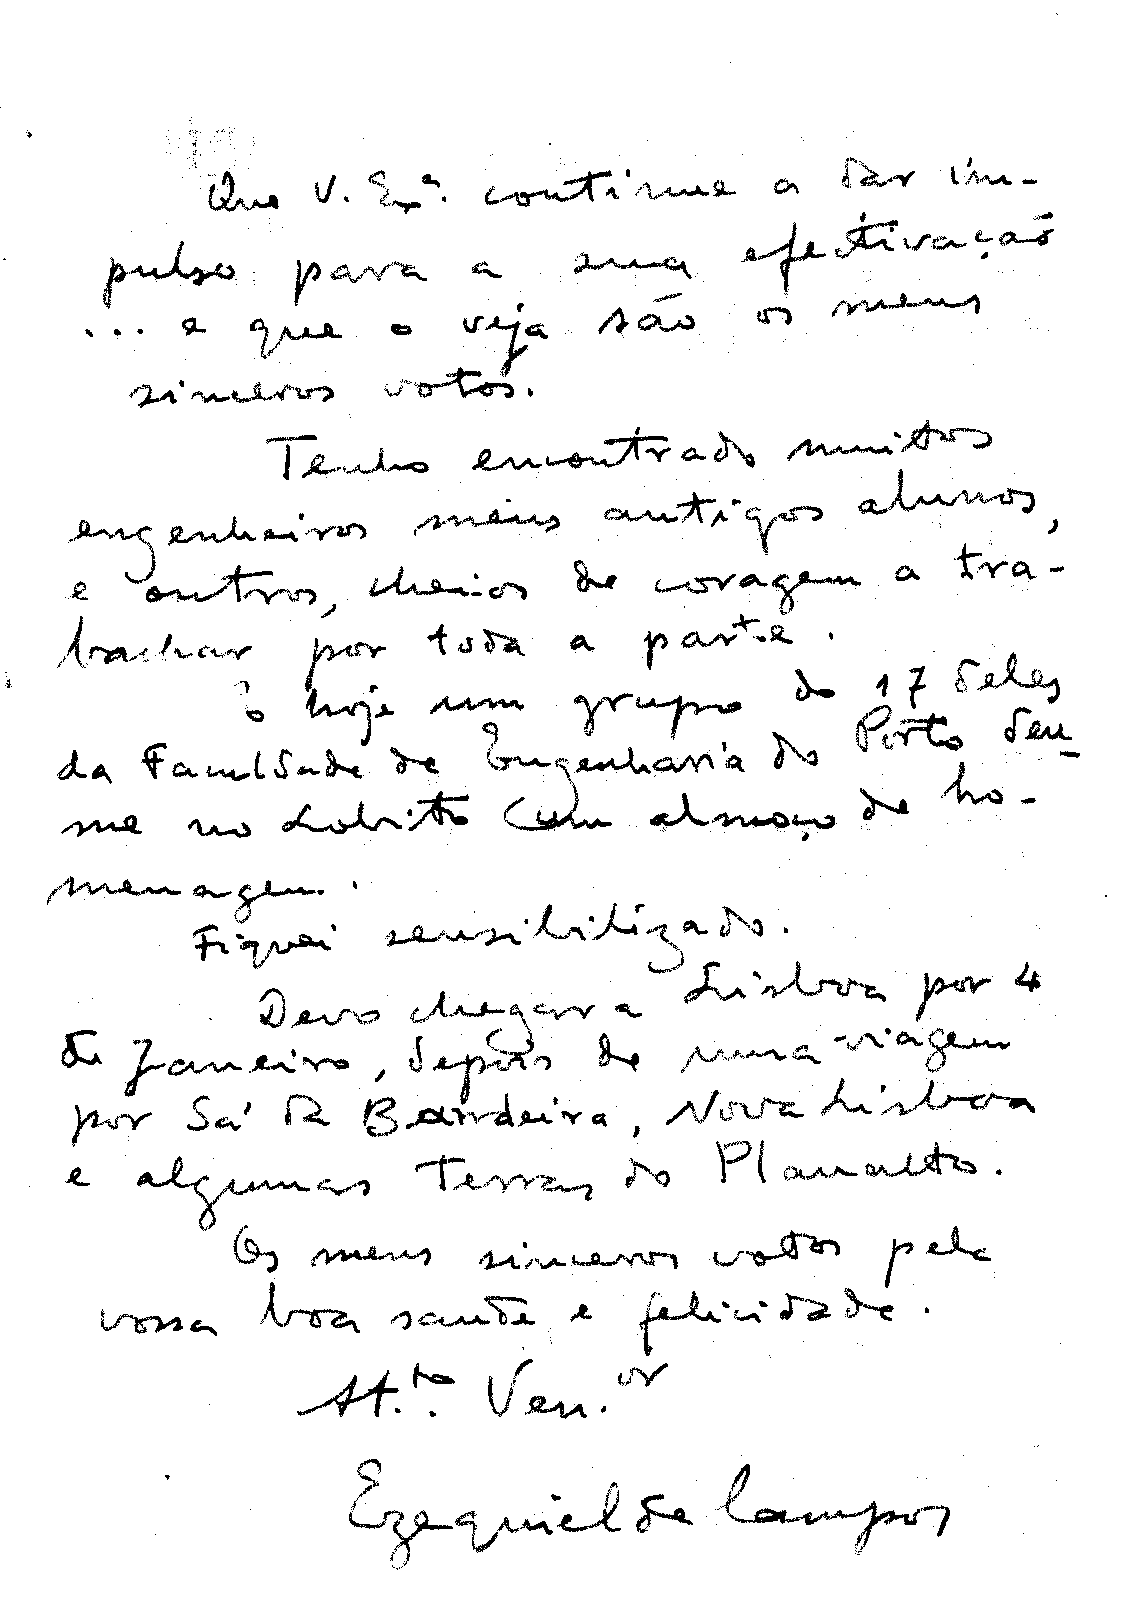 Que V. Ex.ª continue a dar im-
pulso para a sua efectivação
... e que o veja são os meus
sinceros votos.
Tenho encontrado muitos
engenheiros meus antigos alunos,
e outros, cheios de coragem a tra-
balhar por toda a parte.
E hoje um grupo de 17 deles
da Faculdade de Engenharia do Porto deu-
me no Lobito um almoço de ho-
menagem.
Fiquei sensibilizado.
Devo chegar a Lisboa por 4
de Janeiro, depois de uma viagem
por Sá da Bandeira, Nova Lisboa
e algumas terras do Planalto.
Os meus sinceros votos pela
vossa boa saude e felicidade.
At.to Ven.or
Ezequiel de Campos